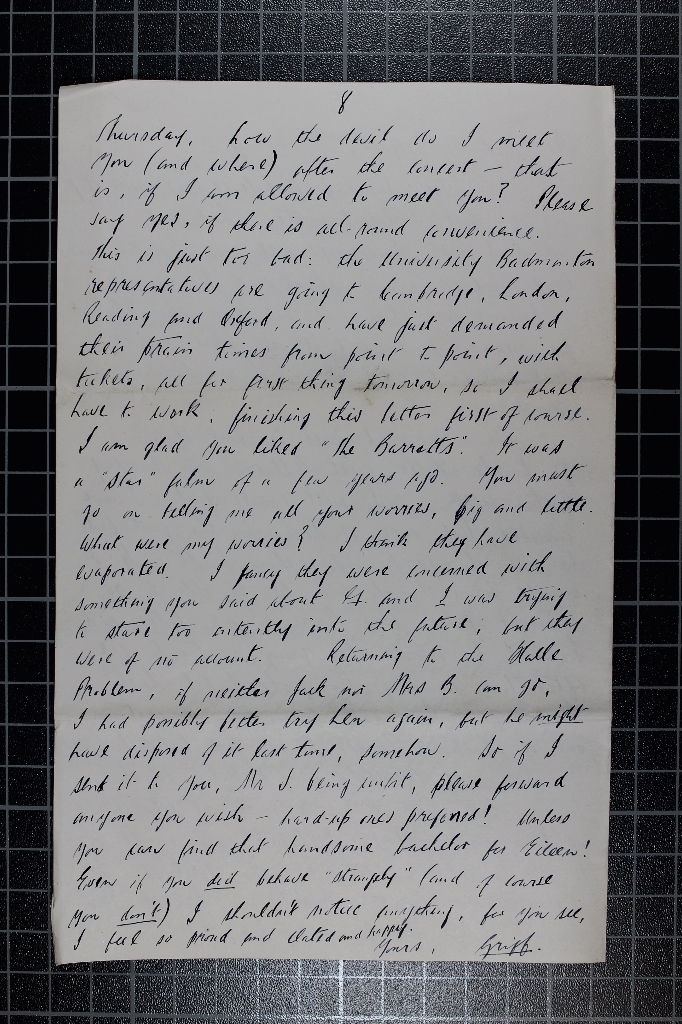 8
Thursday, how the devil do I meet
you (and where) after the concert - that
is, if I am allowed to meet you? Please
say yes, if there is all-round convenience.
This is just too bad: the University Badminton
representatives are going to Cambridge, London,
Reading and Oxford, and have just demanded
their train times from point to point, with
tickets, all for first thing tomorrow, so I shall
have to work, finishing this letter first of course.
I am glad you liked "The Barretts". It was
a "star" film of a few years ago. You must
go on telling me all your worries, big and little.
What were my worries? I think they have
evaporated. I fancy they were concerned with
something you said about and I was trying
to stare too intently into the future; but they
were of no account. Returning to the Halle
Problem, if neither Jack nor Mrs B. can go,
I had possibly better try Len again, but he might
have disposed of it last time, somehow. So if I
send it to you, Mr J. being unfit, please forward
anyone you wish - hard-up ones preferred! Unless
you can find that handsome bachelor for Eileen!
Even if you did behave "strangely" (and of course
you don't) I shouldn't notice anything, for you see,
I feel so proud and elated and happy.
Yours, Griff.